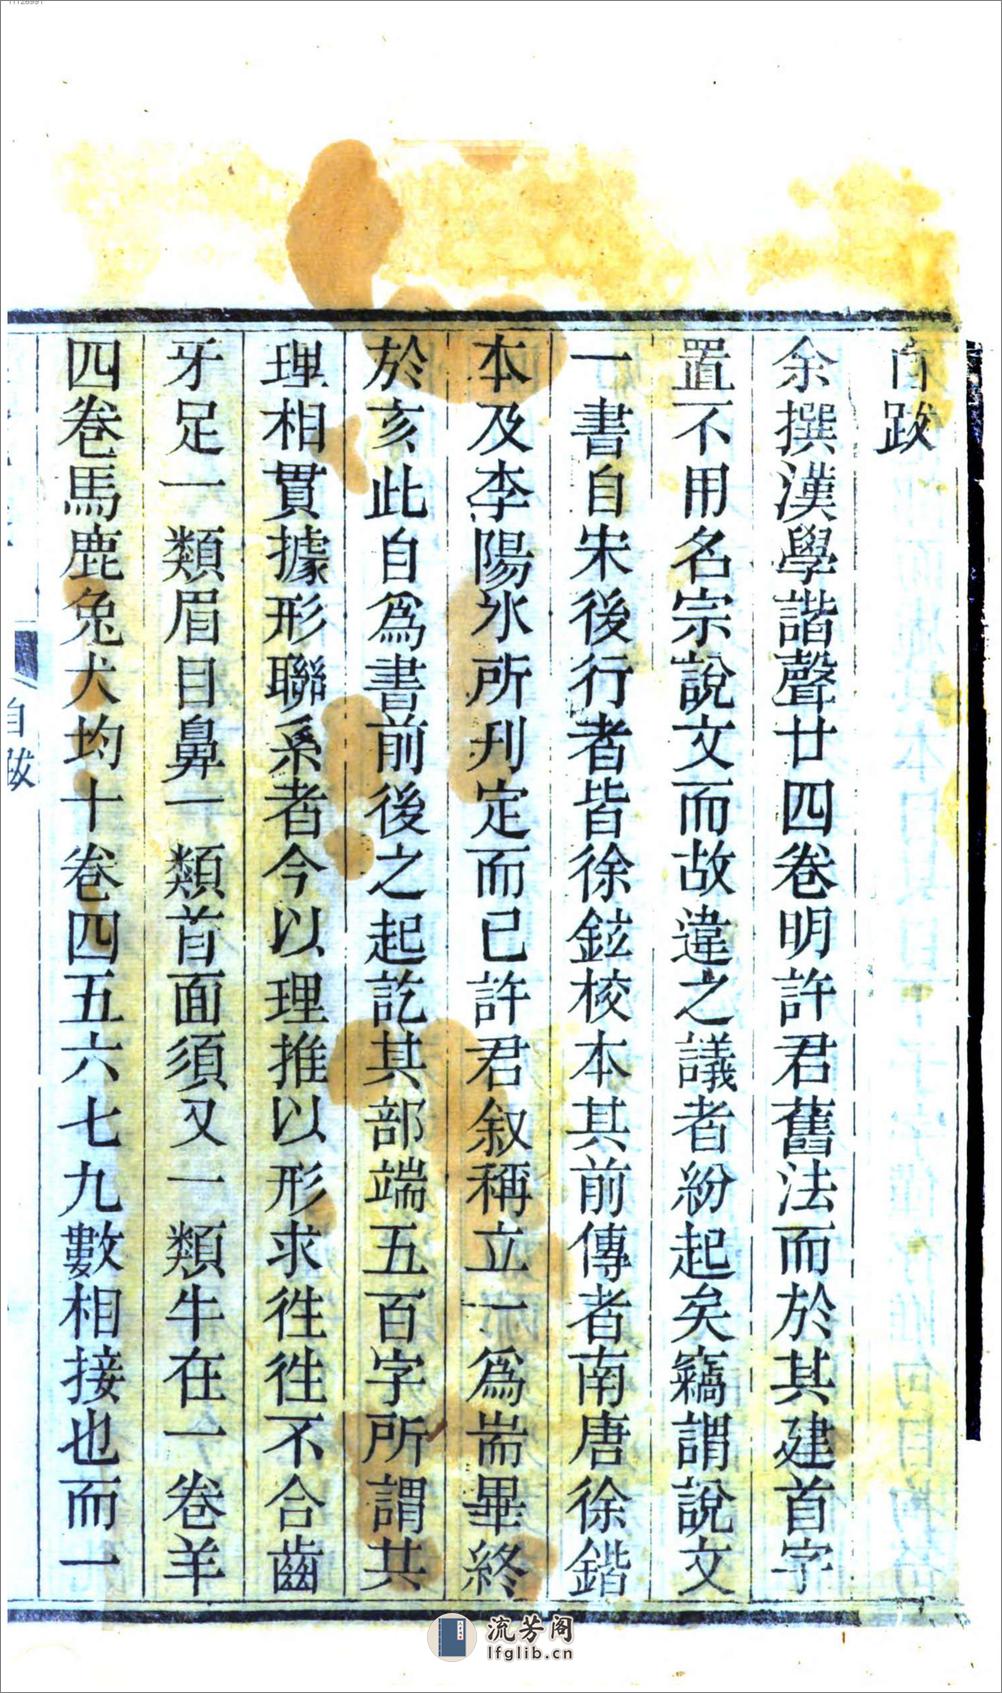 自跋
余撰漢學諧聲廿四卷明許君舊法而於其建首字
置不用名宗說文而故違之議者紛起矣竊謂說文
一書自宋後行者皆徐鉉校本其前傳者南唐徐鍇
本及李陽冰所刋定而已許君叙稱立一爲耑畢終
於亥此自爲書前後之起訖其部端五百字所謂共
理相貫據形聯系者今以理推以形求徃徃不合齒
牙足一類眉目鼻一類首面須又一類牛在一卷羊
四卷馬鹿兔犬均十卷四五六七九數相接也而一
自跋
11126991
流芳阁
lfglib.cn